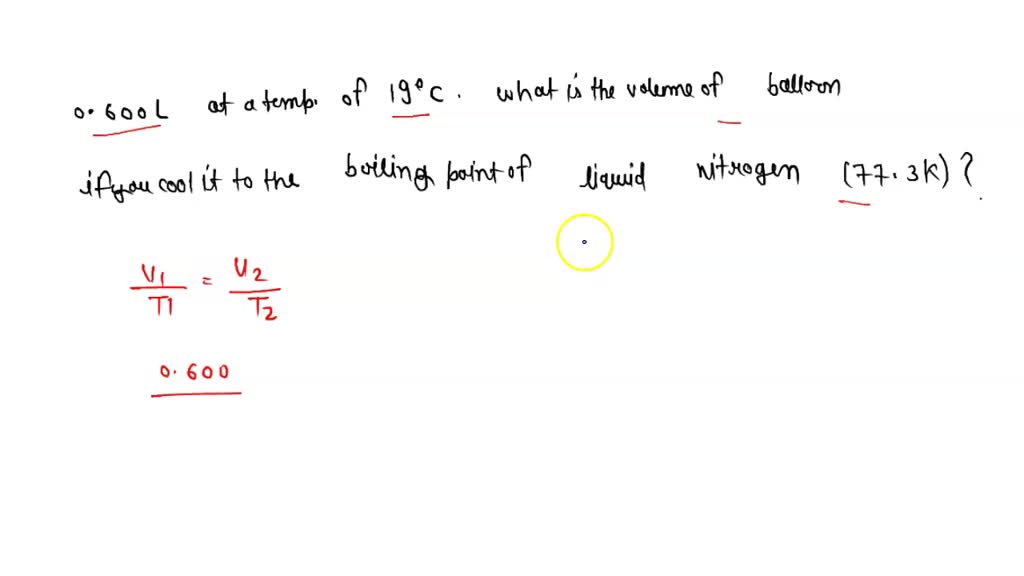 0.600L at a temp. of 19°C. what is the volume of balloon
if you cool it to the boiling point of liquid nitrogen (77.3K)?
V1/T1 = V2/T2
0.600